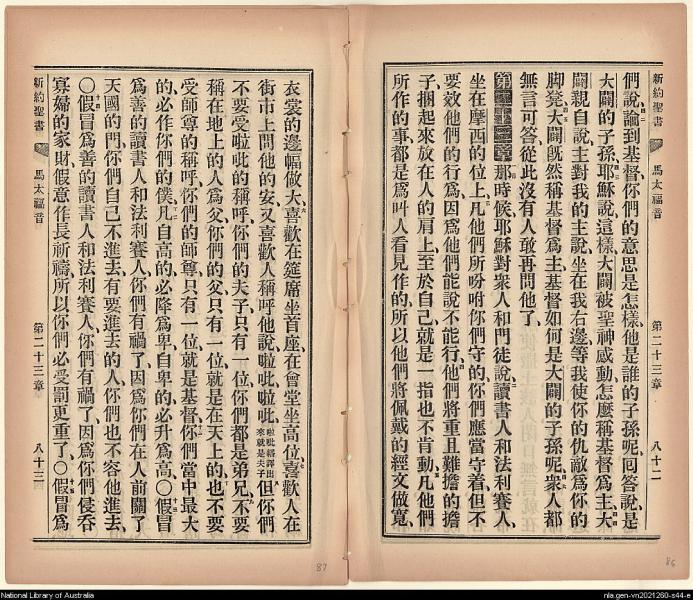 新約聖書 馬太福音 第二十三章 八十二
們說論到基督你們的意思是怎樣他是誰的子孫呢回答說是
大闢的子孫耶穌說這樣大闢被聖神感動怎麼稱基督爲主大
闢親自說主對我的主說坐在我右邊等我使你的仇敵爲你的
脚凳大闢旣然稱基督爲主基督如何是大闢的子孫呢衆人都
無言可答從此沒有人敢再問他了
第二十三章 那時候耶穌對衆人和門徒說讀書人和法利賽人
坐在摩西的位上凡他們所吩咐你們守的你們應當守着但不
要效他們的行爲因爲他們能說不能行他們將重且難擔的擔
子捆起來放在人的肩上至於自己就是一指也不肯動凡他們
所作的事都是爲叫人看見作的所以他們將佩戴的經文做寬
衣裳的邊幅做大喜歡在筵席坐首座在會堂坐高位喜歡人在
街市上問他的安又喜歡人稱呼他說啦吡啦吡啦吡繙譯出來就是夫子但你們
不要受啦吡的稱呼你們的夫子只有一位你們都是弟兄不要
稱在地上的人爲父你們的父只有一位就是在天上的也不要
受師尊的稱呼你們的師尊只有一位就是基督你們當中最大
的必作你們的僕凡自高的必降爲卑自卑的必升爲高〇假冒
爲善的讀書人和法利賽人你們有禍了因爲你們在人前關了
天國的門你們自己不進去有要進去的人你們也不容他進去
〇假冒爲善的讀書人和法利賽人你們有禍了因爲你們侵吞
寡婦的家財假意作長祈禱所以你們必受罰更重了〇假冒爲
新約聖書 馬太福音 第二十三章 八十三
87
86
National Library of Australia
nla.gen-vn2021260-s44-e